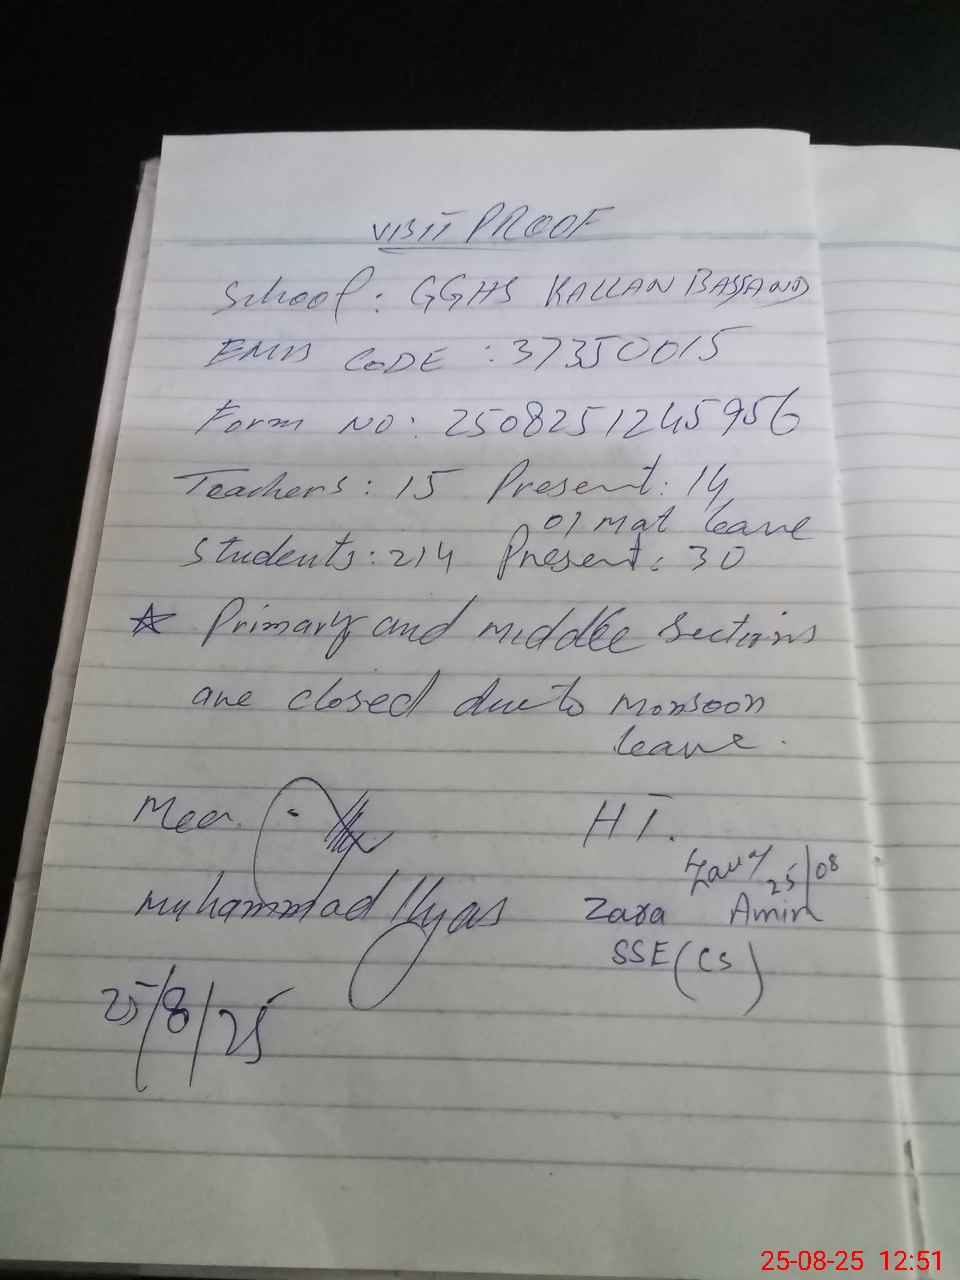 VISIT PROOF
School: GGHS KALLAN BASSAND
EMIS CODE: 37350015
Form NO: 2508251245956
Teachers: 15 Present: 14
01 mat leave
Students: 214 Present: 30
☆ Primary and middle sections
are closed due to Monsoon
leave.
Mea. HT.
25/08
Muhammad Ilyas Zara Amin
SSE (CS)
25/8/25
25-08-25 12:51